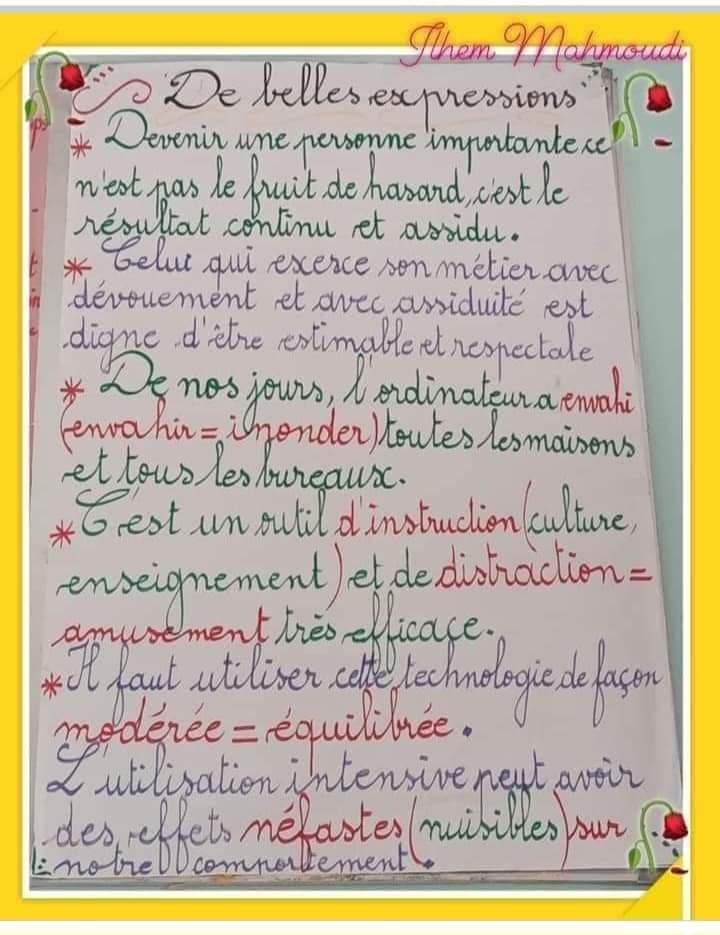 Ilhem Mahmoudi
De belles expressions
* Devenir une personne importante ce
n'est pas le fruit de hasard, c'est le
résultat continu et assidu.
* Celui qui exerce son métier avec
dévouement et avec assiduité est
digne d'être estimable et respectale
* De nos jours, l'ordinateur a envahi
(envahir = inonder) toutes les maisons
et tous les bureaux.
* C'est un outil d'instruction (culture,
enseignement) et de distraction =
amusement très efficace.
* Il faut utiliser cette technologie de façon
modérée = équilibrée.
L'utilisation intensive peut avoir
des effets néfastes (nuisibles) sur
notre comportement.